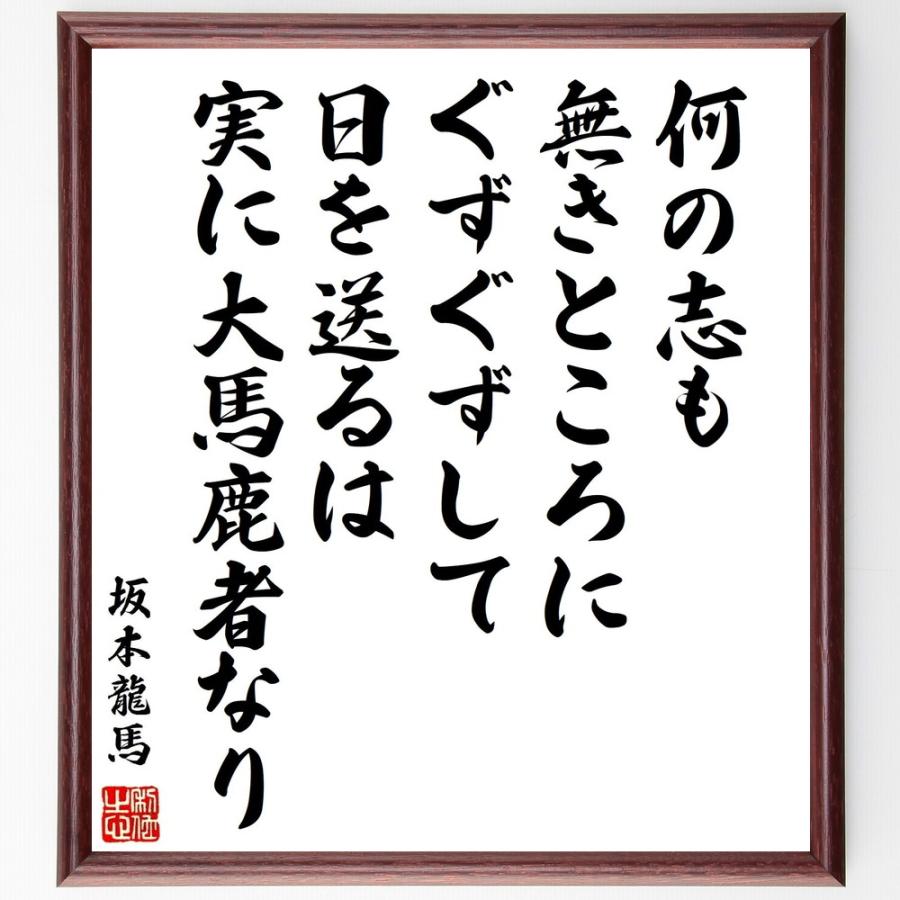 何の志も
無きところに
ぐずぐずして
日を送るは
実に大馬鹿者なり
坂本龍馬